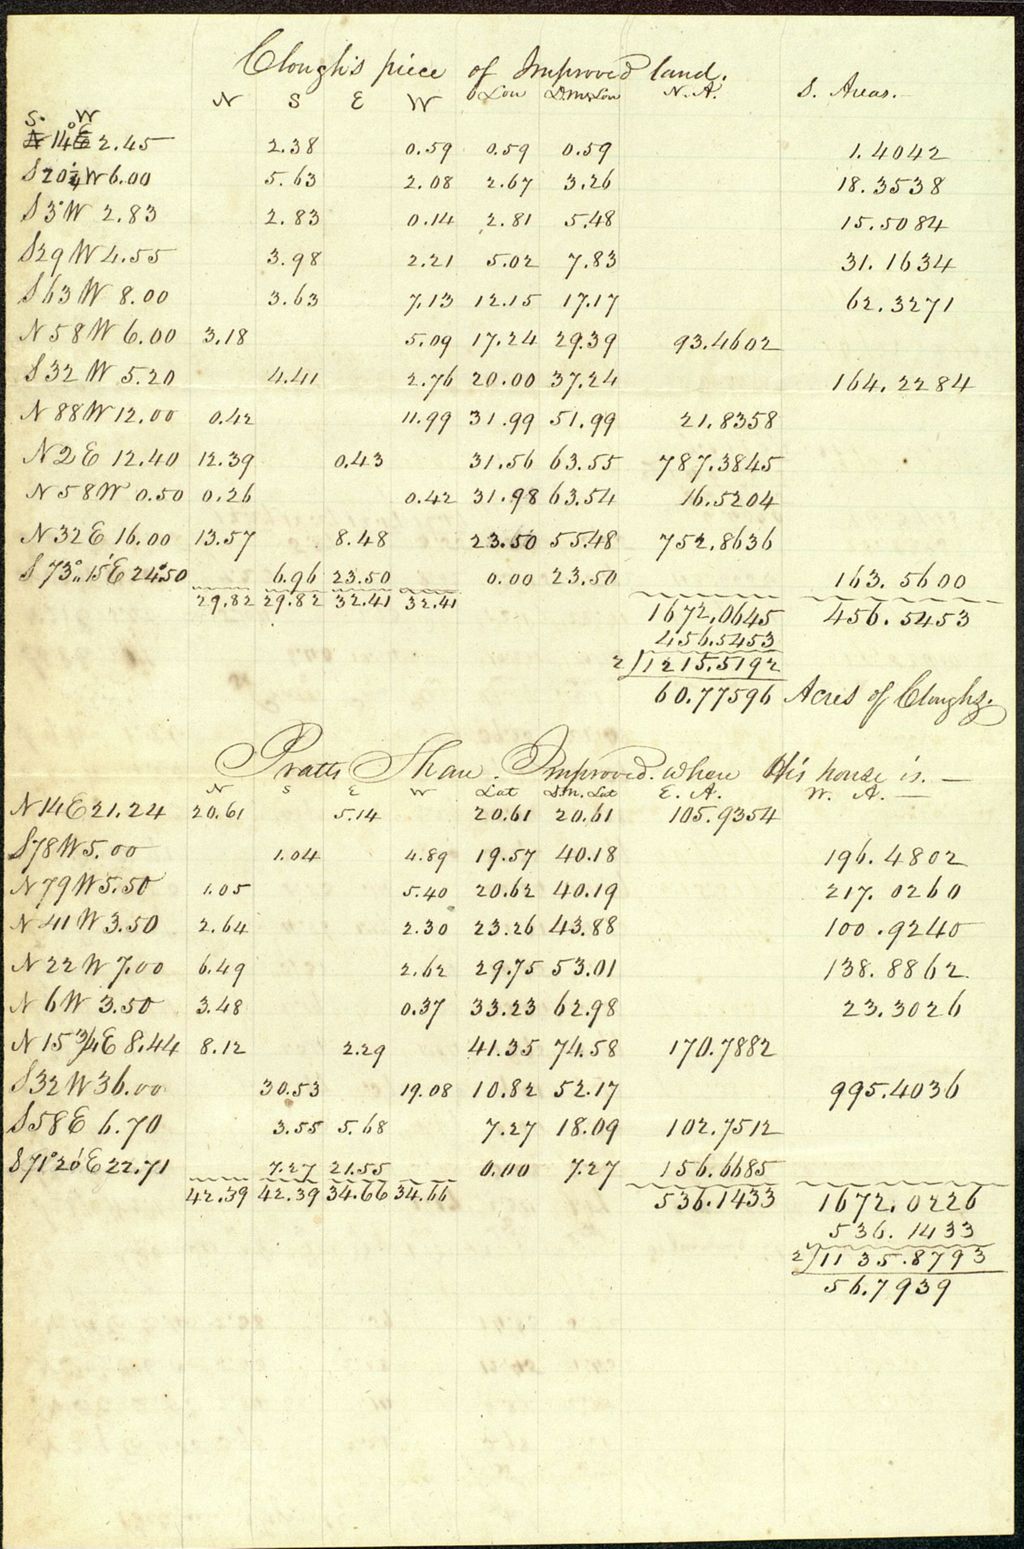 Clough's piece of Improved land.
N S E W Lon D.M.Lon N.A. S. Areas.
S. W
N 14° E 2.45 2.38 0.59 0.59 0.59 1.4042
S 20 1/4 W 6.00 5.63 2.08 2.67 3.26 18.3538
S 3° W 2.83 2.83 0.14 2.81 5.48 15.5084
S 29 W 4.55 3.98 2.21 5.02 7.83 31.1634
S 63 W 8.00 3.63 7.13 12.15 17.17 62.3271
N 58 W 6.00 3.18 5.09 17.24 29.39 93.4602
S 32 W 5.20 4.41 2.76 20.00 37.24 164.2284
N 88 W 12.00 0.42 11.99 31.99 51.99 21.8358
N 2 E 12.40 12.39 0.43 31.56 63.55 787.3845
N 58 W 0.50 0.26 0.42 31.98 63.54 16.5204
N 32 E 16.00 13.57 8.48 23.50 55.48 752.8636
S 73° 15' E 24.50 6.96 23.50 0.00 23.50 163.5600
29.82 29.82 32.41 32.41 1672.0645 456.5453
456.5453
2)1215.5192
60.77596 Acres of Cloughs.
Pratts Share. Improved. where His house is. —
N S E W Lat D.M. Lat E. A. W. A. —
N 14 E 21.24 20.61 5.14 20.61 20.61 105.9354
S 78 W 5.00 1.04 4.89 19.57 40.18 196.4802
N 79 W 5.50 1.05 5.40 20.62 40.19 217.0260
N 41 W 3.50 2.64 2.30 23.26 43.88 100.9240
N 22 W 7.00 6.49 2.62 29.75 53.01 138.8862
N 6 W 3.50 3.48 0.37 33.23 62.98 23.3026
N 15 3/4 E 8.44 8.12 2.29 41.35 74.58 170.7882
S 32 W 36.00 30.53 19.08 10.82 52.17 995.4036
S 58 E 6.70 3.55 5.68 7.27 18.09 102.7512
S 71° 20' E 22.71 7.27 21.55 0.00 7.27 156.6685
42.39 42.39 34.66 34.66 536.1433 1672.0226
536.1433
2)1135.8793
56.7939